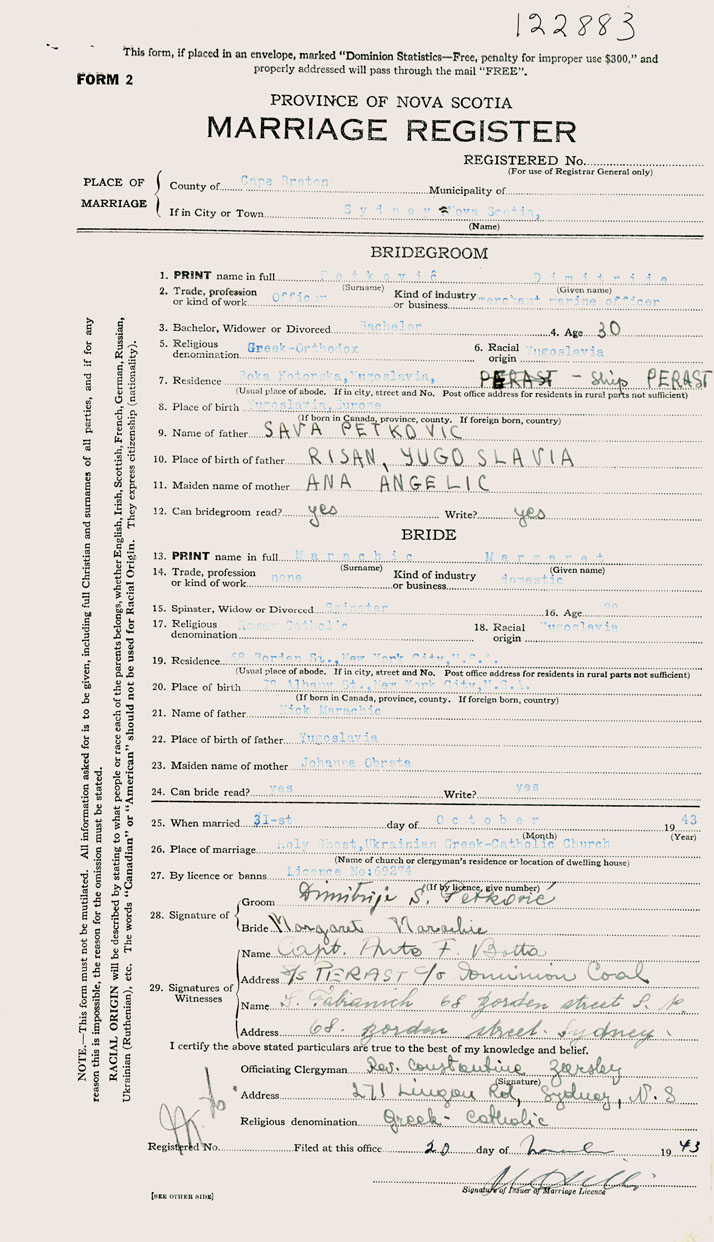 122883
This form, if placed in an envelope, marked "Dominion Statistics—Free, penalty for improper use $300," and
properly addressed will pass through the mail "FREE".
FORM 2
PROVINCE OF NOVA SCOTIA
MARRIAGE REGISTER
REGISTERED No.
(For use of Registrar General only)
PLACE OF MARRIAGE
County of Cape Breton Municipality of
If in City or Town Sydney Nova Scotia,
(Name)
BRIDEGROOM
1. PRINT name in full Petković Dimitrije
(Surname) (Given name)
2. Trade, profession or kind of work Officer Kind of industry or business merchant marine officer
3. Bachelor, Widower or Divorced Bachelor 4. Age 30
5. Religious denomination Greek-Orthodox 6. Racial origin Yugoslavia
7. Residence Boka Kotorska, Yugoslavia, PERAST - Ship PERAST
(Usual place of abode. If in city, street and No. Post office address for residents in rural parts not sufficient)
8. Place of birth Yugoslavia, Europe
(If born in Canada, province, county. If foreign born, country)
9. Name of father SAVA PETKOVIC
10. Place of birth of father RISAN, YUGOSLAVIA
11. Maiden name of mother ANA ANGELIC
12. Can bridegroom read? yes Write? yes
BRIDE
13. PRINT name in full Marachic Margaret
(Surname) (Given name)
14. Trade, profession or kind of work none Kind of industry or business domestic
15. Spinster, Widow or Divorced Spinster 16. Age
17. Religious denomination Roman Catholic 18. Racial origin Yugoslavia
19. Residence 68 Borden St., New York City, U.S.A.
(Usual place of abode. If in city, street and No. Post office address for residents in rural parts not sufficient)
20. Place of birth Albany St., New York City, U.S.A.
(If born in Canada, province, county. If foreign born, country)
21. Name of father Nick Marachic
22. Place of birth of father Yugoslavia
23. Maiden name of mother Johanna
24. Can bride read? yes Write? yes
25. When married 31-st day of October 19 43
(Month) (Year)
26. Place of marriage Holy Ghost, Ukrainian Greek-Catholic Church
(Name of church or clergyman's residence or location of dwelling house)
27. By licence or banns Licence No: 69274
(If by licence, give number)
28. Signature of
Groom Dimitrije S. Petković
Bride Margaret Marachic
29. Signatures of Witnesses
Name Capt. Anto F. Botta
Address S/S PERAST c/o Dominion Coal
Name S. 68 street
Address 68. street. Sydney.
I certify the above stated particulars are true to the best of my knowledge and belief.
Officiating Clergyman Rev. Constantine
(Signature)
Address 271 Lingan Rd, Sydney, N. S
Religious denomination Greek-Catholic
Registered No. Filed at this office 20 day of 19 43
Signature of Issuer of Marriage Licence
[SEE OTHER SIDE]
NOTE.—This form must not be mutilated. All information asked for is to be given, including full Christian and surnames of all parties, and if for any
reason this is impossible, the reason for the omission must be stated.
RACIAL ORIGIN will be described by stating to what people or race each of the parents belongs, whether English, Irish, Scottish, French, German, Russian,
Ukrainian (Ruthenian), etc. The words "Canadian" or "American" should not be used for Racial Origin. They express citizenship (nationality).